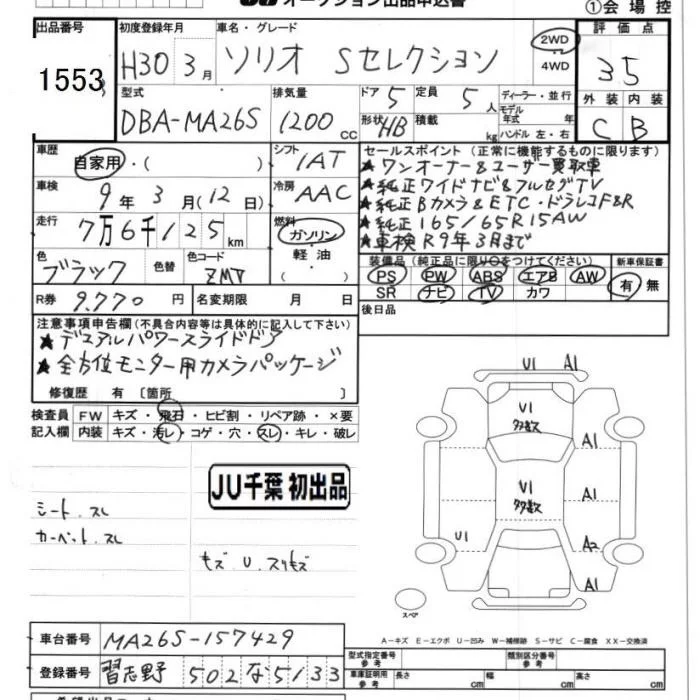 オークション出品申込書
①会場控
出品番号 1553
初度登録年月 H30 3月
車名・グレード ソリオ Sセレクション
2WD
4WD
評価点 35
外装 内装
C B
型式 DBA-MA26S
排気量 1200 cc
ドア 5
定員 5人
ディーラー・並行
モデル
年式 年
形状 HB
積載 kg
ハンドル 左・右
車歴 自家用・( )
シフト 1AT
車検 9年3月(12日)
冷房 AAC
走行 7万6千125km
燃料 ガソリン・軽油・( )
色 ブラック
色替
色コード ZMV
R券 9,770円
名変期限 月 日
セールスポイント (正常に機能するものに限ります)
★ワンオーナー&ユーザー買取車
★純正ワイドナビ&フルセグTV
★純正Bカメラ&ETC・ドラレコF&R
★純正165/65R15AW
★車検R9年3月まで
装備品(純正品に限り○をつけてください)
PS PW ABS エアB AW
SR ナビ TV カワ
新車保証書
有 無
後日品
注意事項申告欄(不具合内容等は具体的に記入して下さい)
★デュアルパワースライドドア
★全方位モニター用カメラパッケージ
修復歴 有 〔箇所 〕
検査員 FW キズ・飛石・ヒビ割・リペア跡・×要
記入欄 内装 キズ・汚レ・コゲ・穴・スレ・キレ・破レ
JU千葉 初出品
シート、スレ
カーペット、スレ
キズ U スリキズ
U1 A1
U1
多数
A1
U1
多数
A1
U1
A2
A1
スペア
A-キズ E-エクボ U-凹み W-補修跡 S-サビ C-腐食 XX-交換済
車台番号 MA26S-157429
登録番号 習志野 502 な 5133
型式指定番号 参考
類別区分番号 参考
車庫証明用 参考 長さ cm 幅 cm 高さ cm